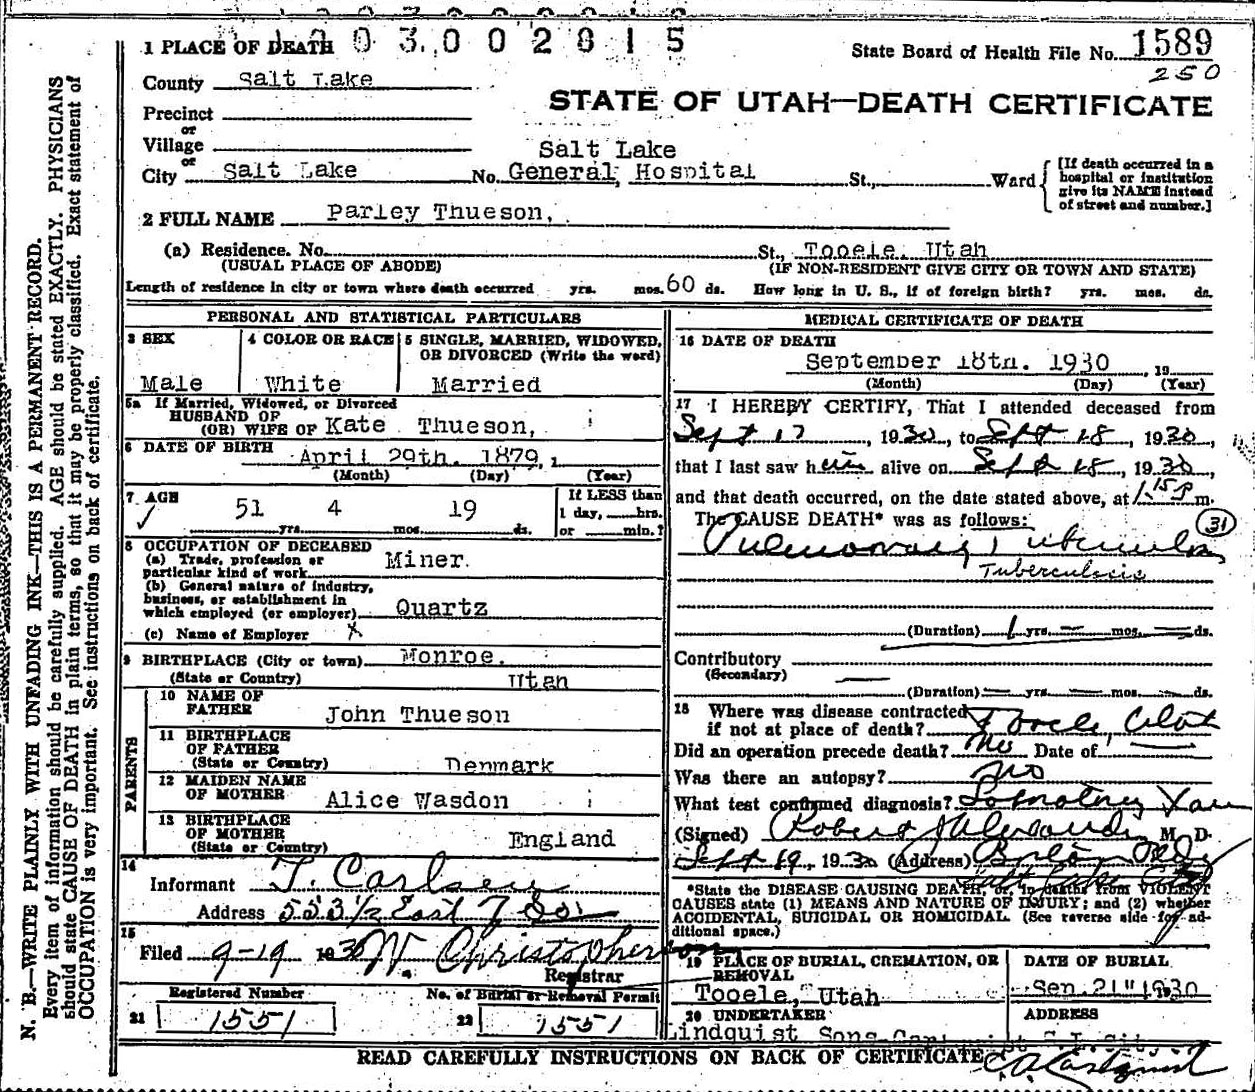 1003002015
1 PLACE OF DEATH
State Board of Health File No. 1589
250
County Salt Lake
STATE OF UTAH—DEATH CERTIFICATE
Precinct
or
Village
or
Salt Lake
City Salt Lake No. General Hospital St., Ward
[If death occurred in a
hospital or institution
give its NAME instead
of street and number.]
2 FULL NAME Parley Thueson,
(a) Residence. No. St., Tooele, Utah
(USUAL PLACE OF ABODE) (IF NON-RESIDENT GIVE CITY OR TOWN AND STATE)
Length of residence in city or town where death occurred yrs. mos. 60 ds. How long in U. S., if of foreign birth? yrs. mos. ds.
PERSONAL AND STATISTICAL PARTICULARS
3 SEX
Male
4 COLOR OR RACE
White
5 SINGLE, MARRIED, WIDOWED,
OR DIVORCED (Write the word)
Married
5a If Married, Widowed, or Divorced
HUSBAND OF
(OR) WIFE OF Kate Thueson,
6 DATE OF BIRTH April 29th. 1879, 1
(Month) (Day) (Year)
7 AGE
51 yrs. 4 mos. 19 ds.
If LESS than
1 day, hrs.
or min.?
8 OCCUPATION OF DECEASED
(a) Trade, profession or
particular kind of work Miner.
(b) General nature of industry,
business, or establishment in
which employed (or employer) Quartz
(c) Name of Employer x
9 BIRTHPLACE (City or town) Monroe.
(State or Country) Utah
PARENTS
10 NAME OF
FATHER John Thueson
11 BIRTHPLACE
OF FATHER
(State or Country) Denmark
12 MAIDEN NAME
OF MOTHER Alice Wasdon
13 BIRTHPLACE
OF MOTHER
(State or Country) England
14
Informant T. Carlsen
Address 553 1/2 East 7 So
15
Filed 9-19 1930 W. Christopherson
Registrar
Registered Number
21 1551
No. of Burial or Removal Permit
22 1551
MEDICAL CERTIFICATE OF DEATH
16 DATE OF DEATH
September 18th. 1930, 19
(Month) (Day) (Year)
17 I HEREBY CERTIFY, That I attended deceased from
Sept 17, 1930, to Sept 18, 1930,
that I last saw him alive on Sept 18, 1930,
and that death occurred, on the date stated above, at 1:15 P m.
The CAUSE DEATH* was as follows: 31
Pulmonary Tuberculosis
Tuberculosis
(Duration) 1 yrs. — mos. — ds.
Contributory
(Secondary) —
(Duration) — yrs. — mos. — ds.
18 Where was disease contracted
if not at place of death? Tooele, Utah
Did an operation precede death? No Date of —
Was there an autopsy? No
What test confirmed diagnosis? Laboratory
(Signed) Robert M. D.
Sept 19, 1930 (Address)
Salt Lake City
*State the DISEASE CAUSING DEATH, or, in deaths from VIOLENT
CAUSES state (1) MEANS AND NATURE OF INJURY; and (2) whether
ACCIDENTAL, SUICIDAL OR HOMICIDAL. (See reverse side for ad-
ditional space.)
19 PLACE OF BURIAL, CREMATION, OR
REMOVAL
Tooele, Utah
DATE OF BURIAL
Sep. 21" 1930
20 UNDERTAKER
Lindquist Sons S.L. City
ADDRESS
READ CAREFULLY INSTRUCTIONS ON BACK OF CERTIFICATE
N. B.—WRITE PLAINLY WITH UNFADING INK—THIS IS A PERMANENT RECORD.
Every item of information should be carefully supplied. AGE should be stated EXACTLY. PHYSICIANS
should state CAUSE OF DEATH in plain terms, so that it may be properly classified. Exact statement of
OCCUPATION is very important. See instructions on back of certificate.